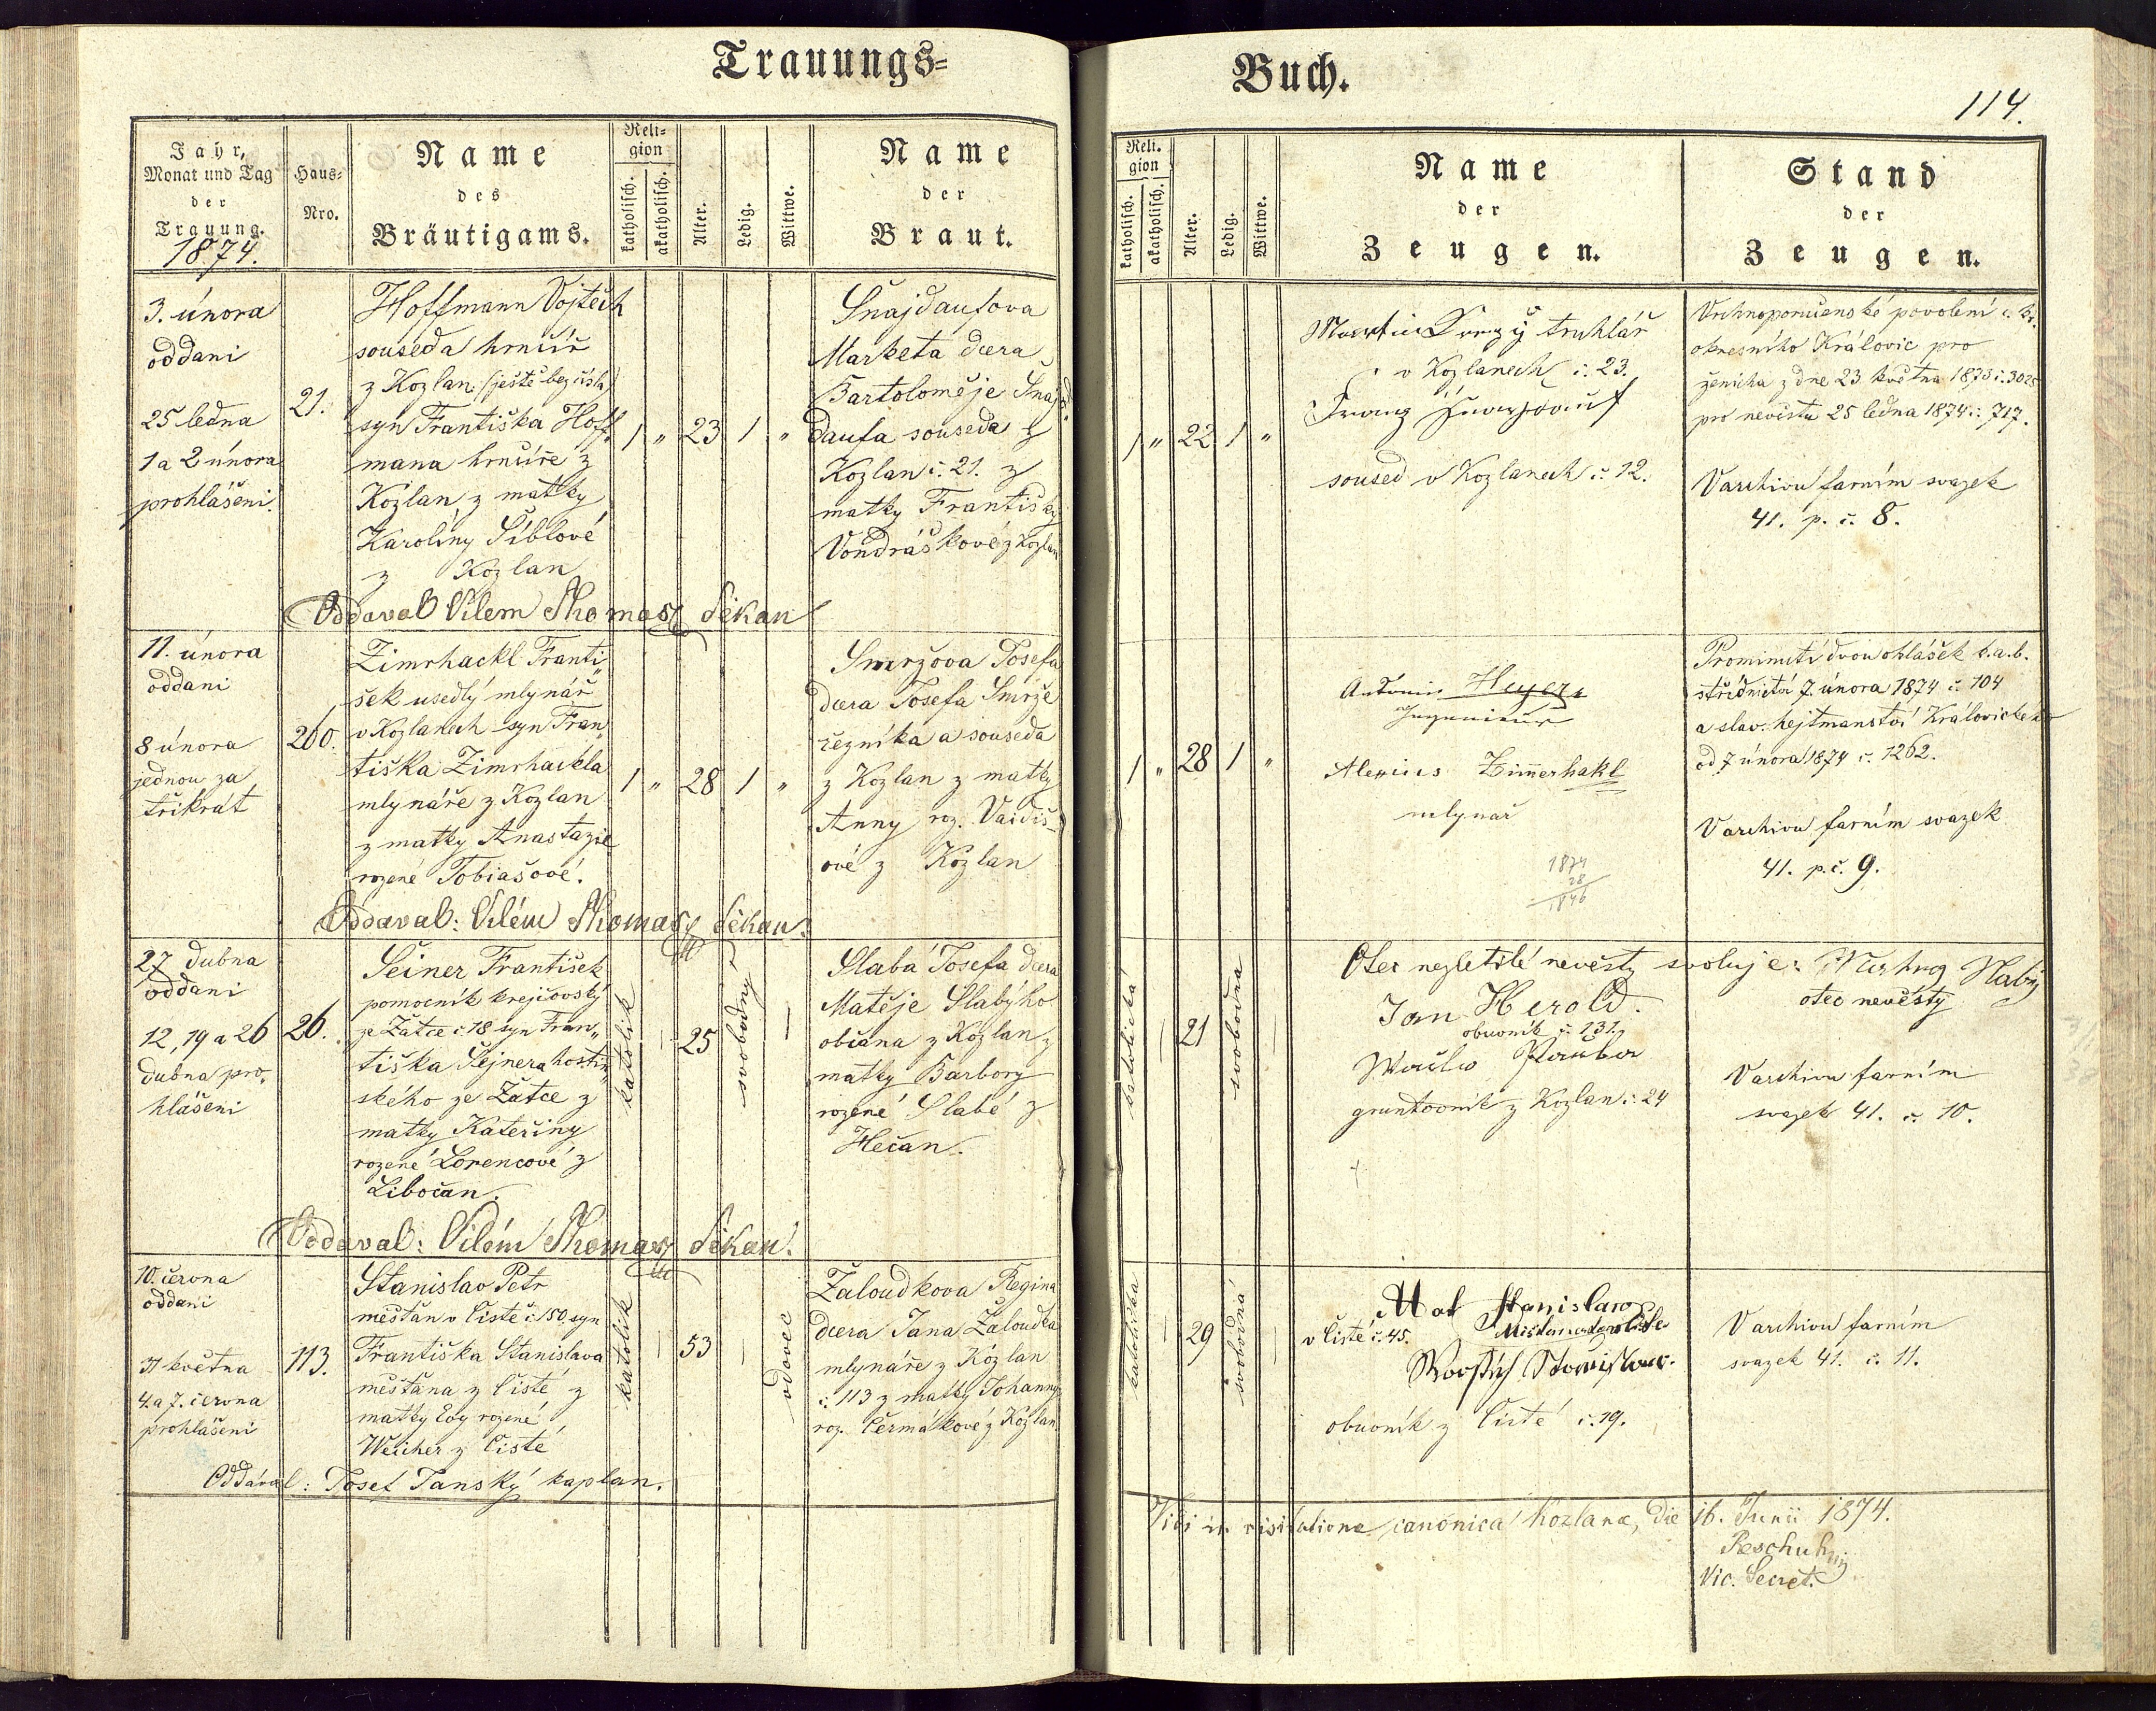 Trauungs=
Buch.
114.
Jahr,
Monat und Tag
der
Trauung.
1874.
Haus=
Nro.
Name
des
Bräutigams.
Reli=
gion
katholisch.
akatholisch.
Alter.
Ledig.
Wittwe.
Name
der
Braut.
Reli=
gion
katholisch.
akatholisch.
Alter.
Ledig.
Wittwe.
Name
der
Zeugen.
Stand
der
Zeugen.
3. února
oddani
25 ledna
1 a 2 února
prohlášeni.
21.
Hoffmann Vojtěch
souseda hrnčíř
z Kozlan (ještě bez čísla)
syn Františka Hoff
mana hrnčíře z
Kozlan z matky
Karoliny Šíblové
z Kozlan
1 " 23 1 "
Šnajdaufova
Marketa dcera
Bartoloměje Šnaj
daufa souseda z
Kozlan č. 21. z
matky Františky
Vondráškové z Kozlan
1 " 22 1 "
Martin truhlář
v Kozlanech č. 23.
Franz
soused v Kozlanech č. 12.
Vrchnoporučenské povolení c. kr.
okresního Královic pro
ženicha z dne 23. května 1873 č. 3025
pro nevěstu 25 ledna 1874 č. 717.
V archivu farním svazek
41. p. č. 8.
Oddaval Vilem Thomasz děkan
11. února
oddani
8 února
jednou za
třikrát
200.
Zimrhackl Franti
šek usedlý mlynář
v Kozlanech syn Fran
tiška Zimrhackla
mlynáře z Kozlan
z matky Anastazie
rozené Tobiašové.
1 " 28 1 "
Smržova Josefa
dcera Josefa Smrže
řezníka a souseda
z Kozlan z matky
Anny roz. Vaidiš
ové z Kozlan
1 " 28 1 "
Antonin Heyer
Ingenieur
Alexius Zimmerhakl
mlynař
1874
28
1846
Prominutí dvou ohlášek b. a. b.
střídnictví 7. února 1874 č. 104
a slav. hejtmanství Královického
od 7 února 1874 č. 1262.
V archivu farním svazek
41. p. č. 9.
Oddaval: Vilém Thomasz děkan.
27 dubna
oddani
12, 19 a 26
dubna pro,
hlášeni
26.
Šeiner František
pomocník krejčovský
ze Žatce č 18 syn Fran„
tiška Šejnera hostin„
ského ze Žatce z
matky Kateřiny
rozené Lorencové z
Libočan.
katolik
25
svobodný
Slabá Josefa dcera
Matěje Slabýho
občana z Kozlan z
matky Barbory
rozené Slabé z
Hečan.
katolická
21
svobodna
Otec nezletilé nevěsty svoluje:
otec nevěsty
Jan Herold.
obuvník č. 131.
gruntovník z Kozlan č. 24
V archivu farním
svazek 41. č. 10.
Oddaval: Vilém Thomasz děkan.
10. června
oddani
31 května
4. a 7. června
prohlášeni
113.
Stanislav Petr
měšťan v Čisté č. 150, syn
Františka Stanislava
měšťana z Čisté z
matky Evy rozené
Weicher z Čisté
katolik
53
vdovec
Žaloudkova Regina
dcera Jana Žaloudka
mlynáře z Kozlan
č. 113 z matky Johanny
roz. Čermákové z Kozlan.
katolička
29
svobodná
Mat Stanislaw
v Čisté č. 45.
obuvník z Čisté č. 19.
V archivu farním
svazek 41. č. 11.
Oddával: Josef Janský kaplan.
Vidi in visitatione canonica Kozlanae, die 16. Junii 1874.
Vic. Secret.